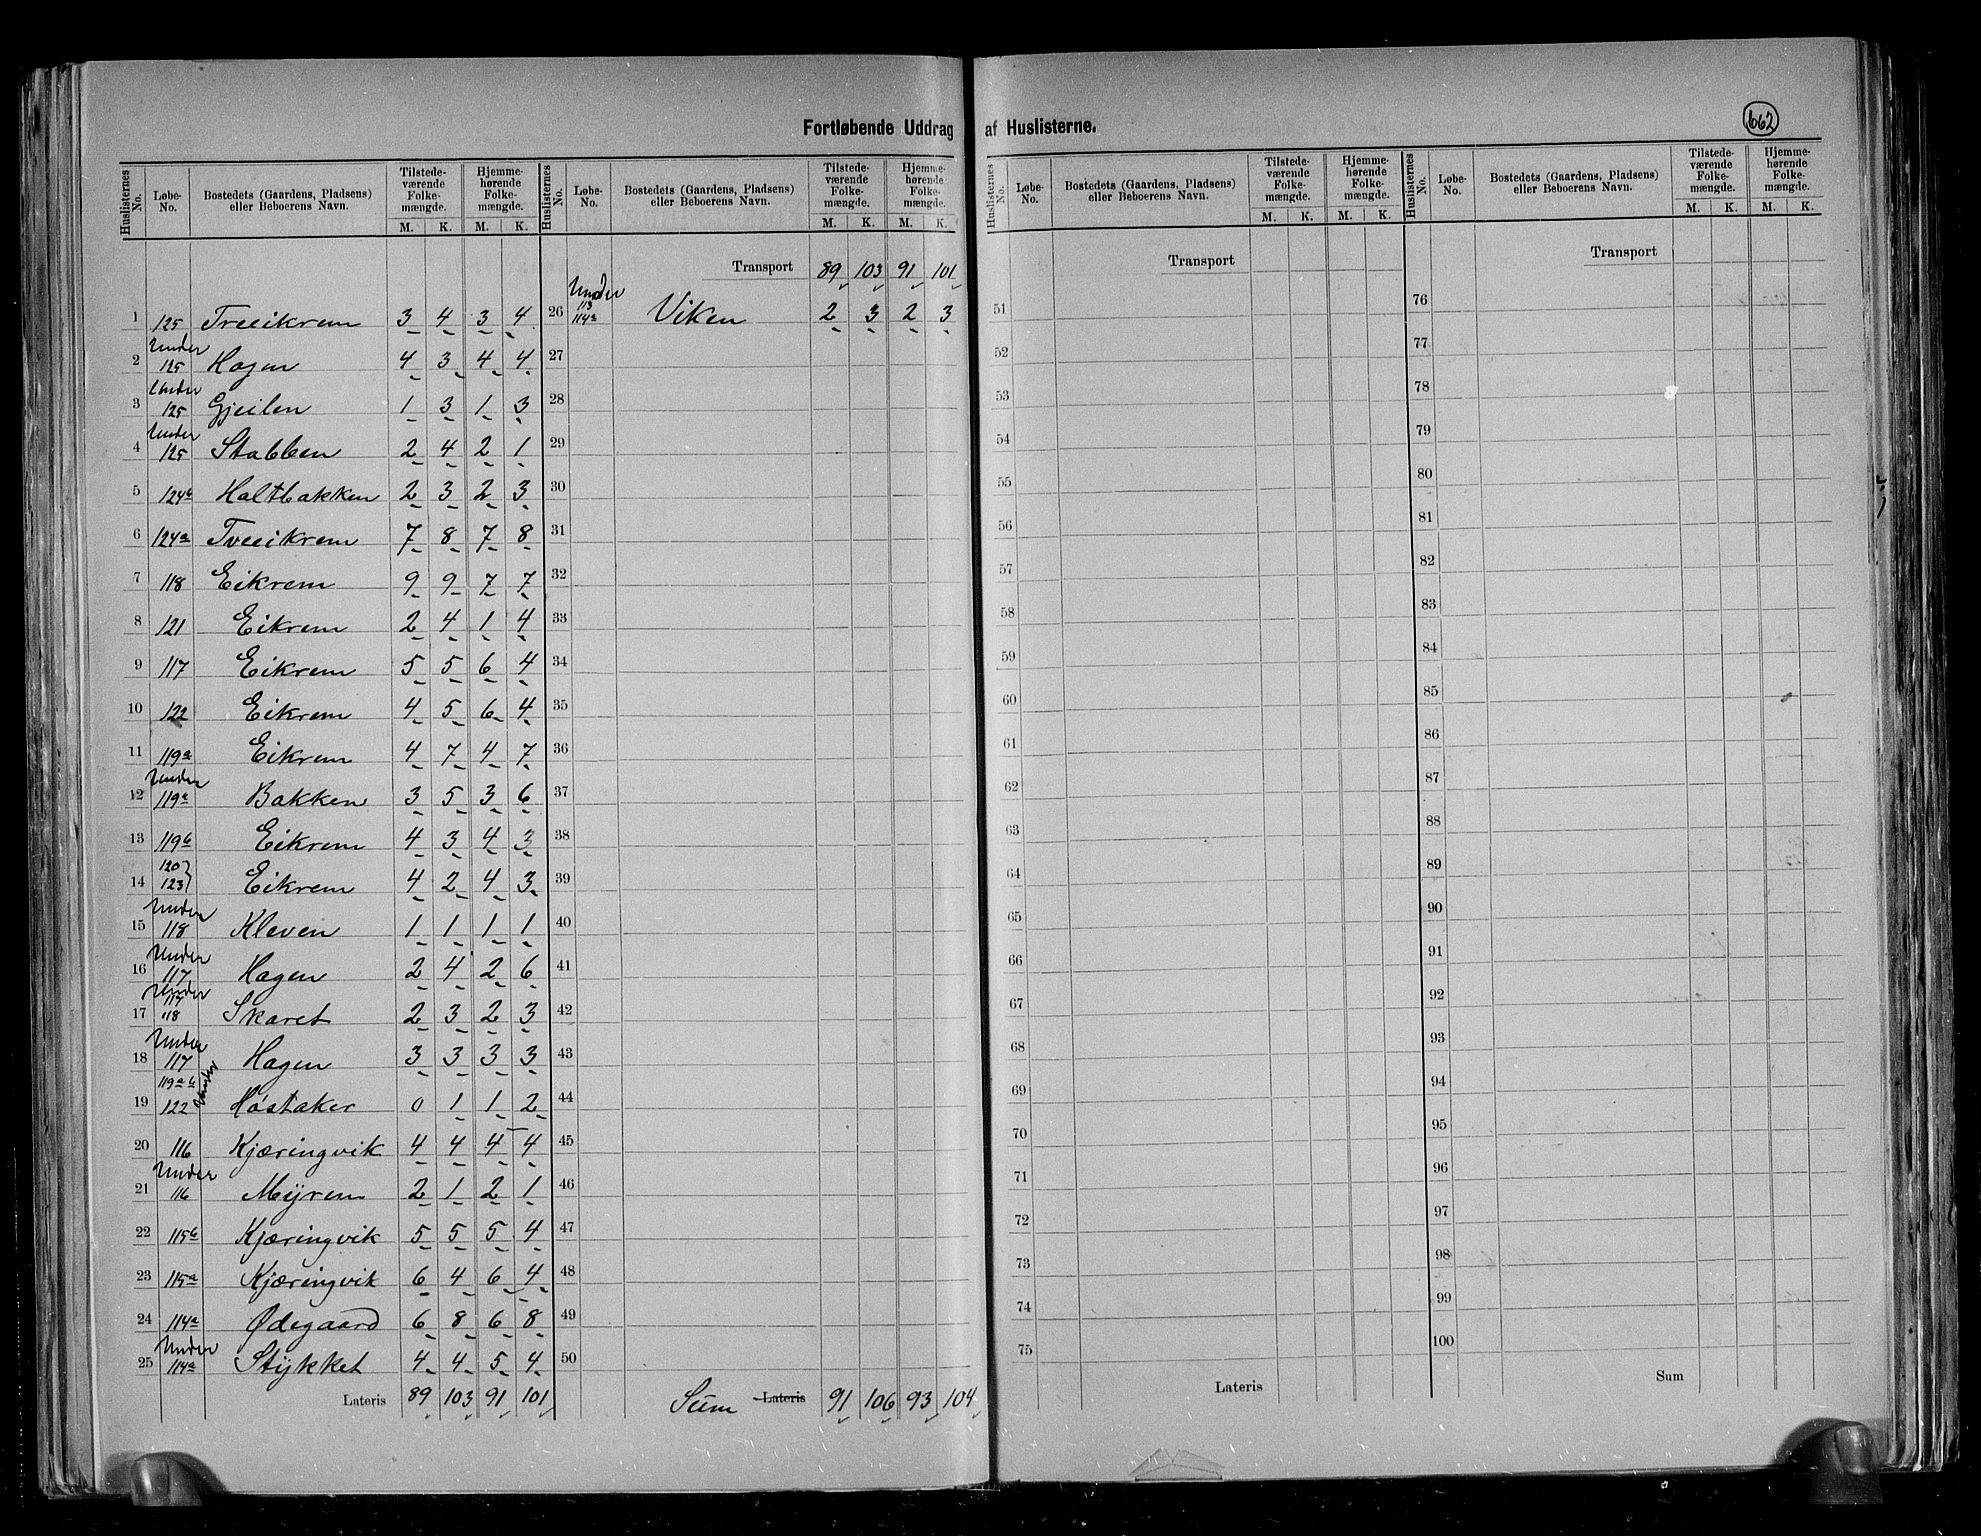 Fortløbende Uddrag af Huslisterne.
662
Huslisternes No. Løbe-No. Bostedets (Gaardens, Pladsens) eller Beboerens Navn. Tilstedeværende Folkemængde. M. K. Hjemmehørende Folkemængde. M. K.
1 125 Treeikrem 3 4 3 4
2 Under 125 Hagen 4 3 4 4
3 Under 125 Gjeilen 1 3 1 3
4 Under 125 Stabben 2 4 2 1
5 124b Haltbakken 2 3 2 3
6 124a Tveeikrem 7 8 7 8
7 118 Eikrem 9 9 7 7
8 121 Eikrem 2 4 1 4
9 117 Eikrem 5 5 6 4
10 122 Eikrem 4 5 6 4
11 119a Eikrem 4 7 4 7
12 Under 119a Bakken 3 5 3 6
13 119b Eikrem 4 3 4 3
14 120 123 Eikrem 4 2 4 3
15 Under 118 Kleven 1 1 1 1
16 Under 117 Hagen 2 4 2 6
17 Under 117 118 Skaret 2 3 2 3
18 Under 117 Hagen 3 3 3 3
19 119a b 122 Under Høstaker 0 1 1 2
20 116 Kjæringvik 4 4 4 4
21 Under 116 Myren 2 1 2 1
22 115b Kjæringvik 5 5 5 4
23 115a Kjæringvik 6 4 6 4
24 114a Ødegaard 6 8 6 8
25 Under 114a Stykket 4 4 5 4
Lateris 89 103 91 101
Huslisternes No. Løbe-No. Bostedets (Gaardens, Pladsens) eller Beboerens Navn. Tilstedeværende Folkemængde. M. K. Hjemmehørende Folkemængde. M. K.
Transport 89 103 91 101
26 Under 113 114a Viken 2 3 2 3
27
28
29
30
31
32
33
34
35
36
37
38
39
40
41
42
43
44
45
46
47
48
49
50
Sum Lateris 91 106 93 104
Huslisternes No. Løbe-No. Bostedets (Gaardens, Pladsens) eller Beboerens Navn. Tilstedeværende Folkemængde. M. K. Hjemmehørende Folkemængde. M. K.
Transport
51
52
53
54
55
56
57
58
59
60
61
62
63
64
65
66
67
68
69
70
71
72
73
74
75
Lateris
Huslisternes No. Løbe-No. Bostedets (Gaardens, Pladsens) eller Beboerens Navn. Tilstedeværende Folkemængde. M. K. Hjemmehørende Folkemængde. M. K.
Transport
76
77
78
79
80
81
82
83
84
85
86
87
88
89
90
91
92
93
94
95
96
97
98
99
100
Sum